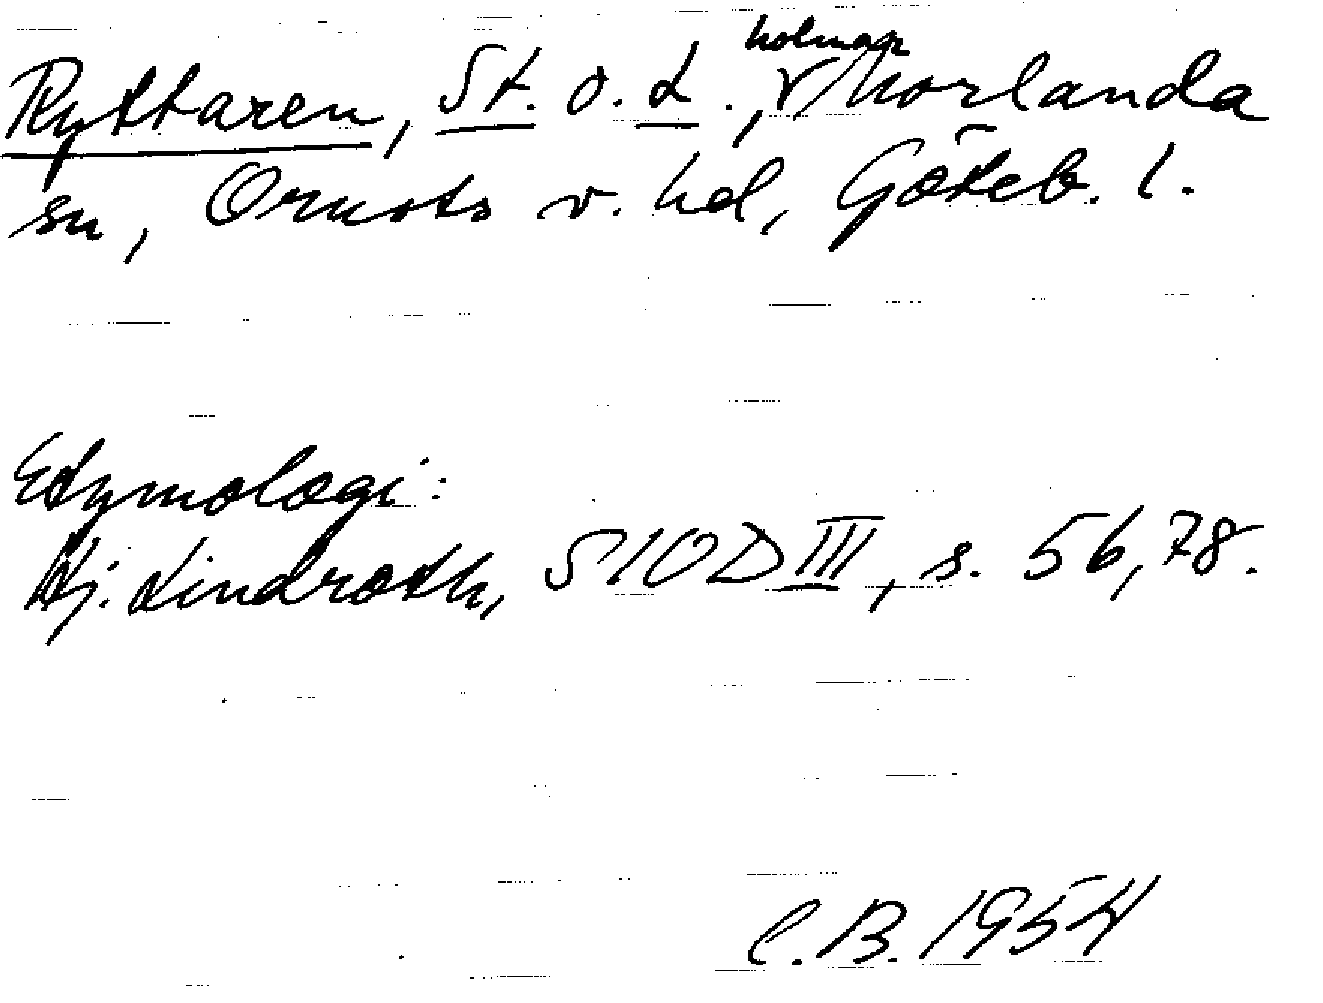 Ryttaren, St. o. L., holmar, Norlanda
sn, Orusts v. hd, Göteb. l.
Etymologi:
Hj. Lindroth, SIOD III, s. 56, 78.
C.B. 1954